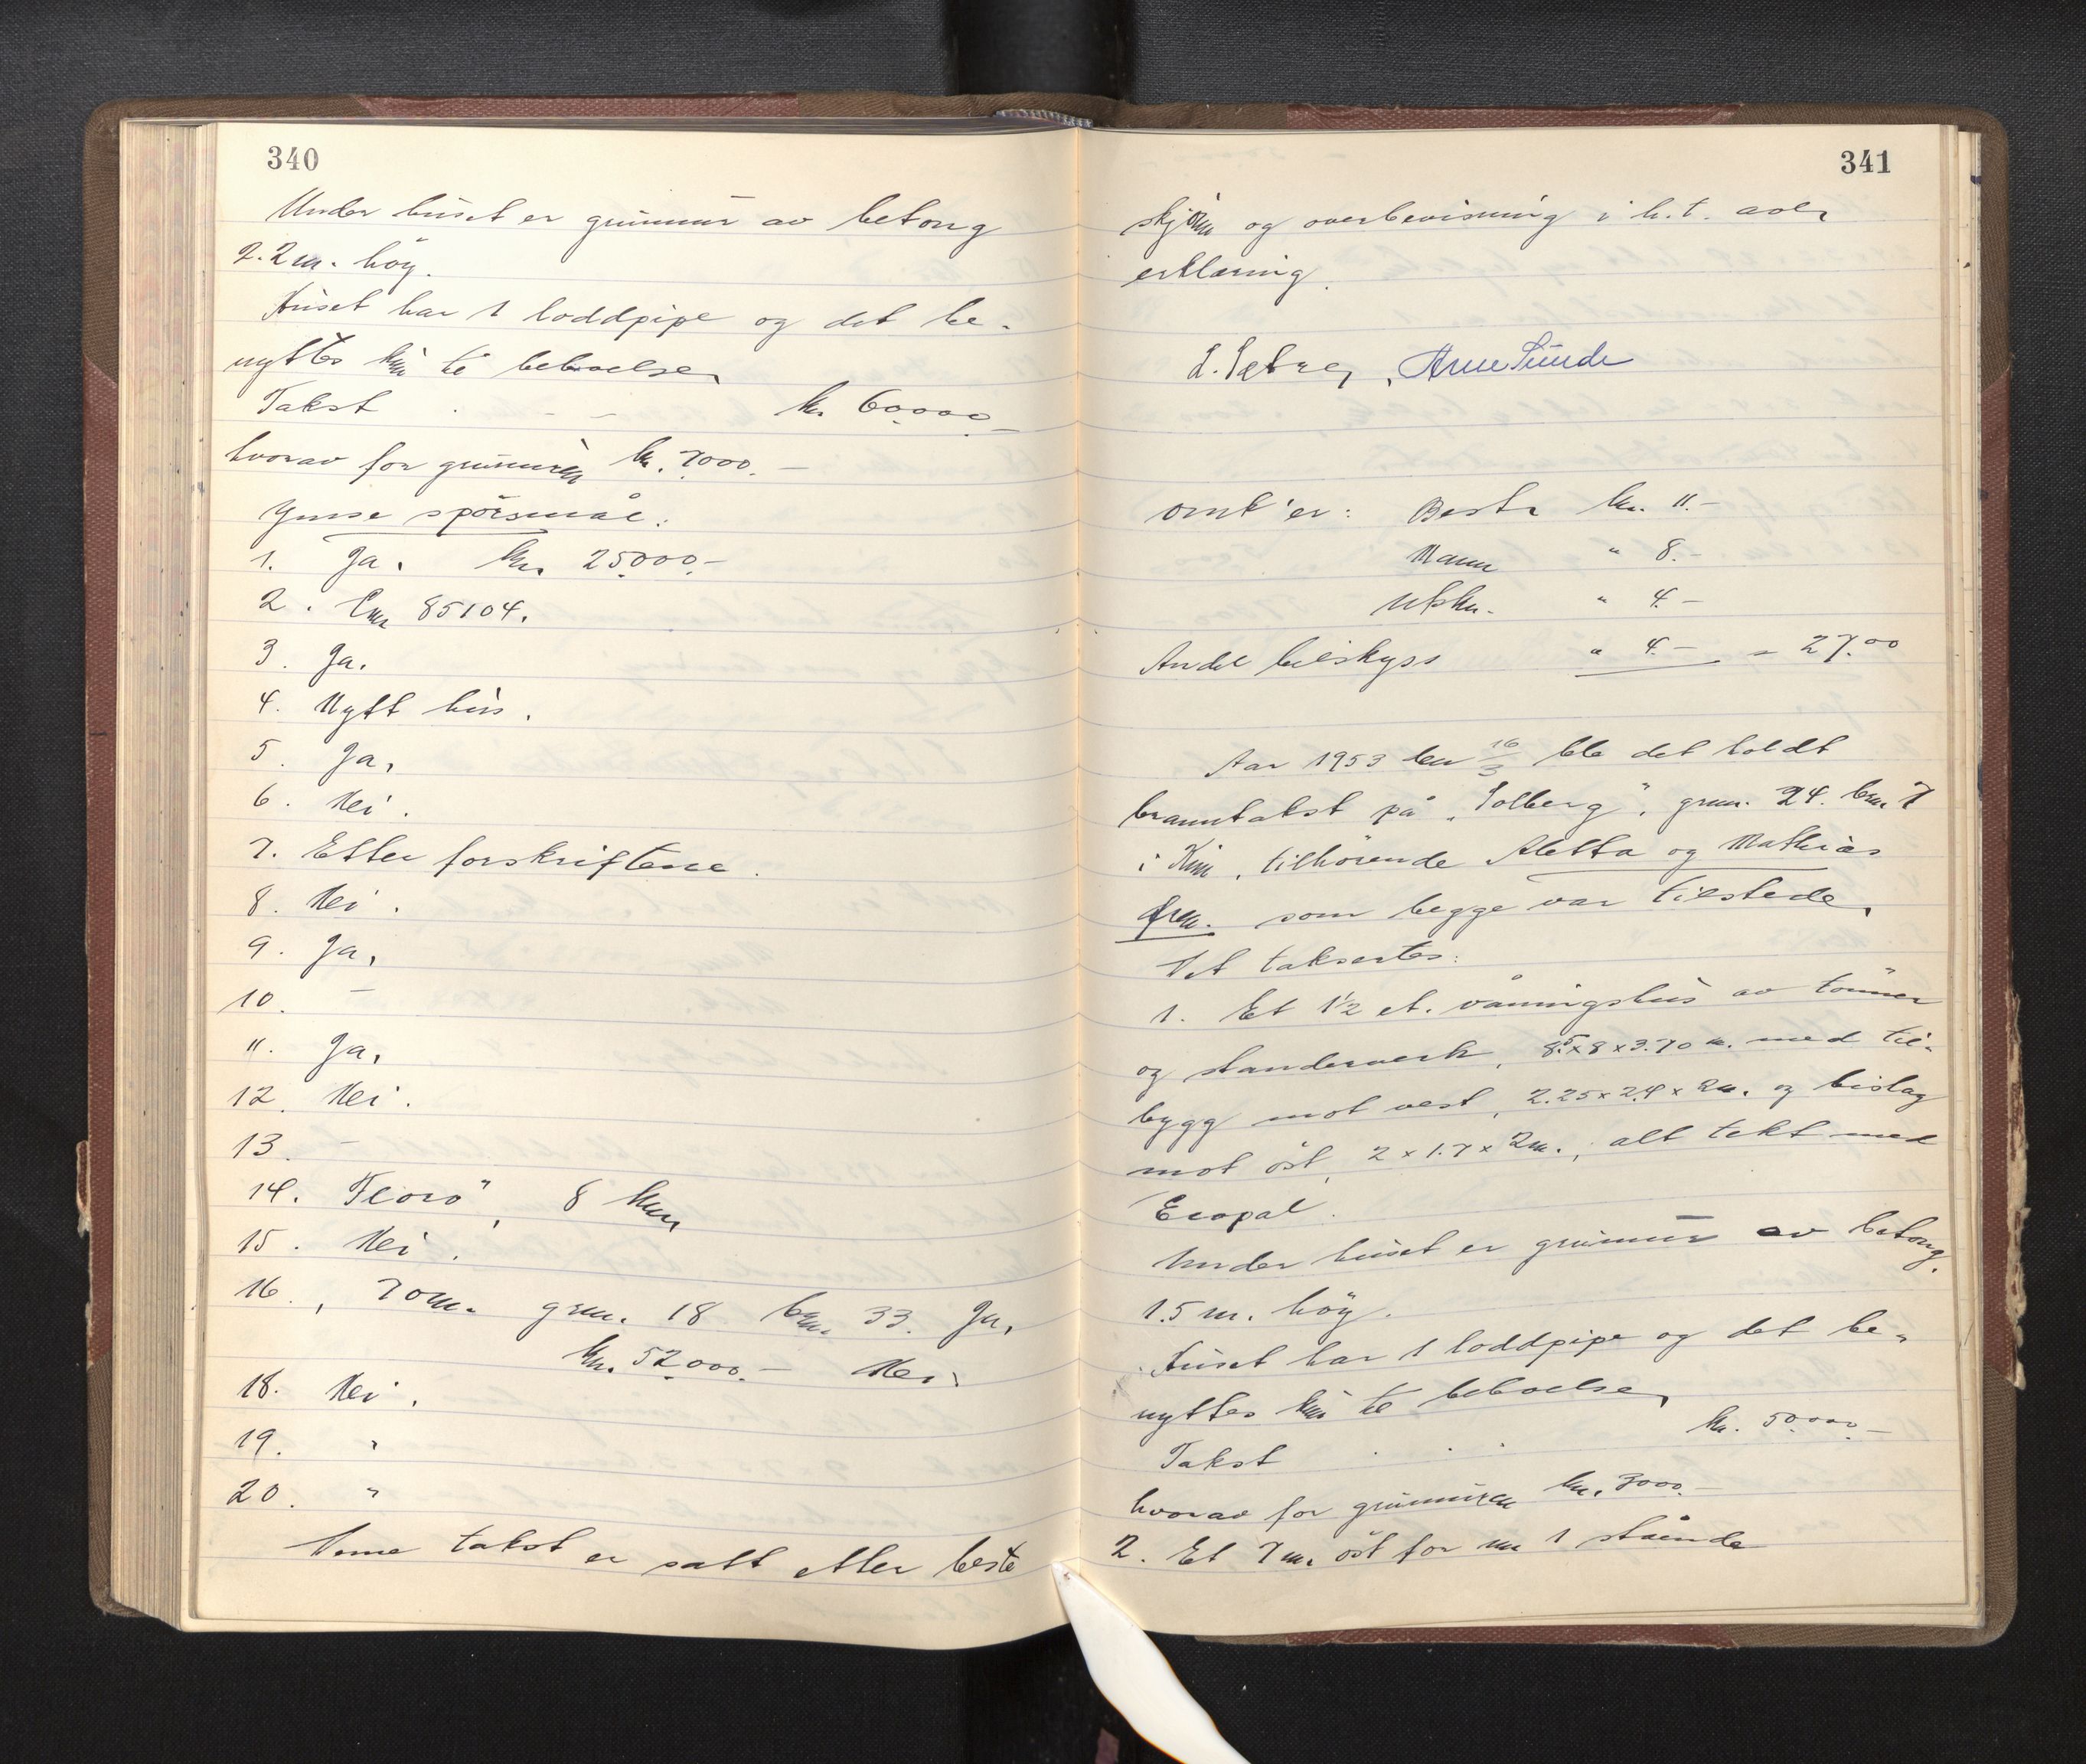 340
Under huset er grunmur av betong
2.2 m. höy.
Huset har 1 loddpipe og det be-
nyttes kun til beboelse,
Takst . - - kr. 60.000.-
hvorav for grunmuren kr. 7000.-
Ymse spörsmål:
1. Ja. kr. 25.000.-
2. Lnr 85104.
3. Ja.
4. Nytt hus.
5. Ja,
6. Nei.
7. Etter forskriftene.
8. Nei.
9. Ja,
10. -
11. Ja,
12. Nei.
13. -
14. Florö, 8 km
15. Nei.
16. , 70 m. gnr. 18 bnr. 33. Ja,
kr. 52.000.- Nei.
18. Nei.
19. "
20. "
Denne takst er satt etter beste
341
skjönn og overbevisning i h.t. avlr
erklæring.
L. Sætre, Arne Sunde
Omk'er: Bestr kr. 11.-
Mann " 8.-
Uskn. " 4.-
Andel bilskyss " 4.- = 27.00
Aar 1953 den 16/3 ble det holdt
branntakst på "Solberg", gnr. 24. bnr. 7
i Kinn, tilhörende Aletta og Mathias
som begge var tilstede,
Det taksertes:
1. Et 1½ et. våningshus av tömmer
og standerverk, 8.5 x 8 x 3.70 m. med til-
bygg mot vest, 2.25 x 2.4 x 2 m. og bislag
mot öst, 2 x 1.7 x 2 m., alt tekt med
Ecopal.
Under huset er grunmur av betong.
1.5 m. höy.
Huset har 1 loddpipe og det be-
nyttes kun til beboelse,
Takst . . . kr. 50.000.-
hvorav for grunmuren kr. 3000.-
2. Et 7 m. öst for nr 1 stående